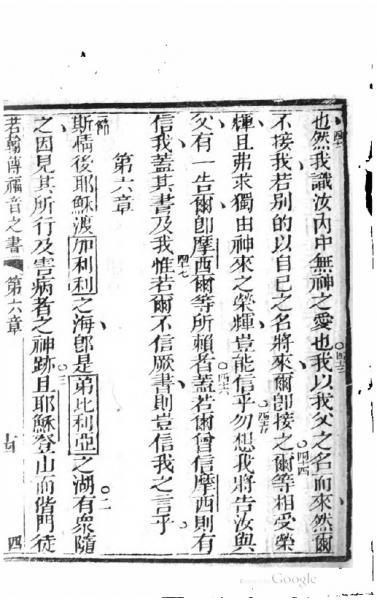 也然我識汝內中無神之愛也我以我父之名而來然爾
不接我若別的以自己之名將來爾卽接之爾等相受榮
輝且弗求獨由神來之榮輝豈能信乎勿想我將告汝與
父有一告爾卽摩西爾等所賴者蓋若爾曾信摩西則有
信我蓋其書及我惟若爾不信厥書則豈信我之言乎
第六章
斯情後耶穌渡加利利之海卽是第比利亞之湖有衆隨
之因見其所行及害病者之神跡且耶穌登山而偕門徒
若翰傳福音之書 第六章 四
Google